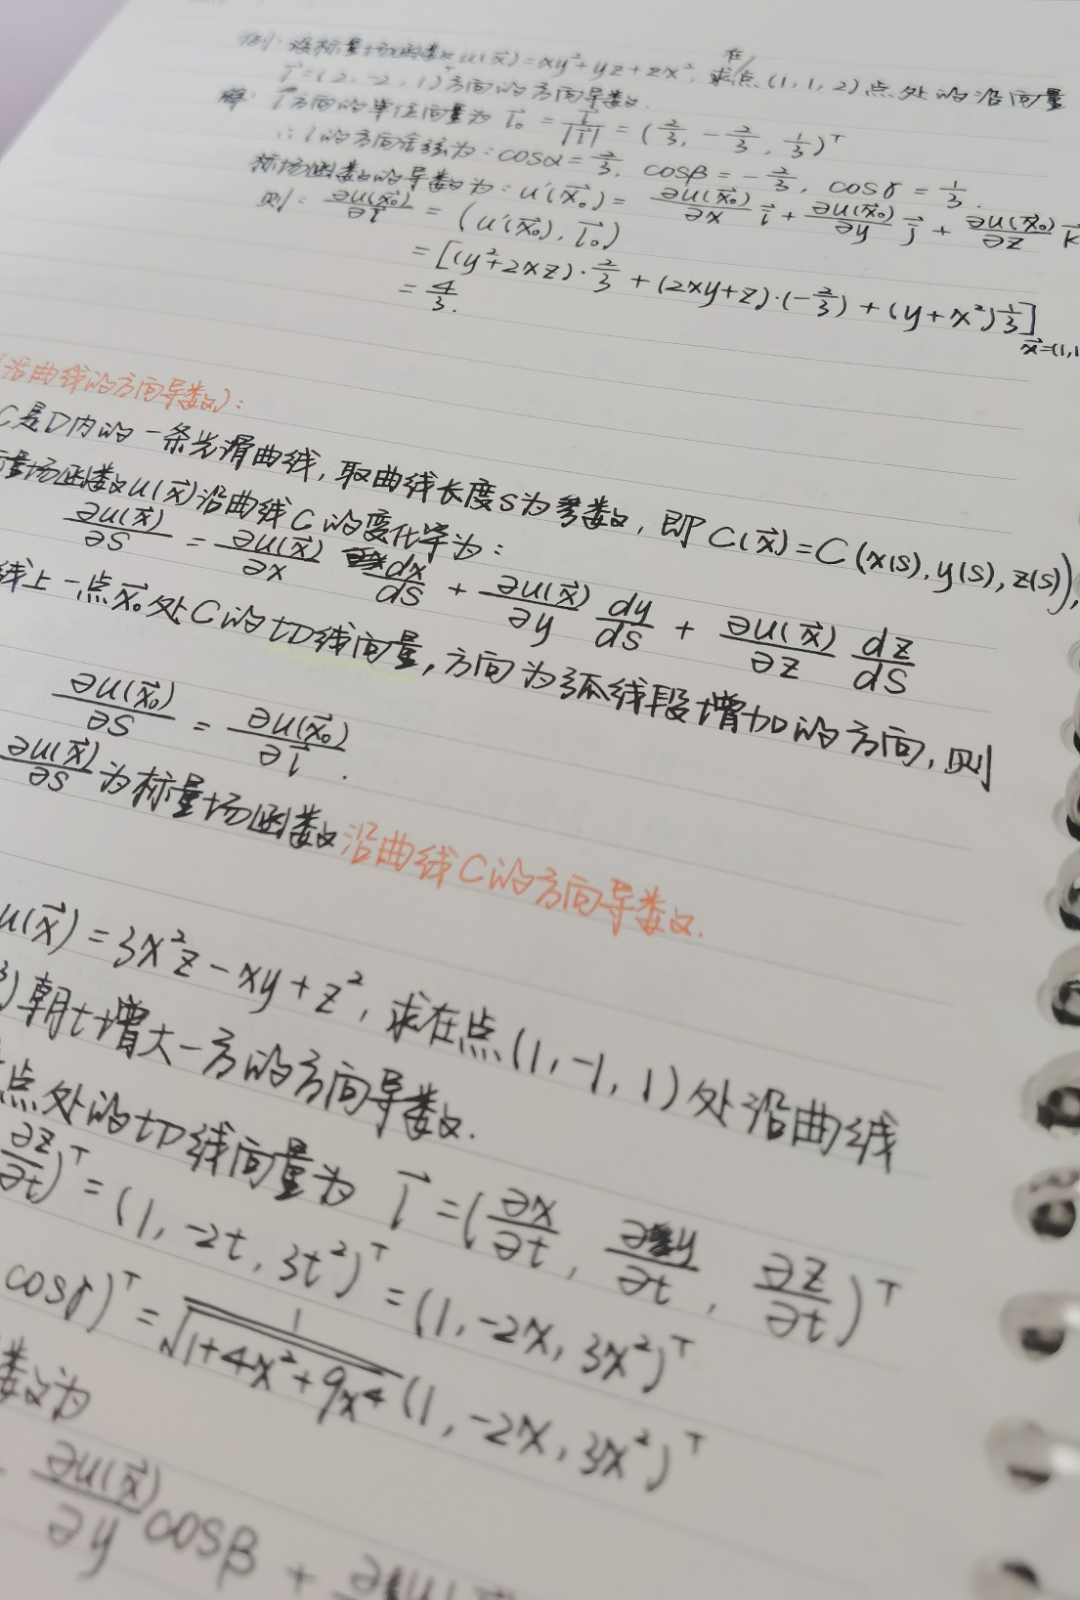 例: 设标量场函数 u(x⃗)=xy²+yz+zx², 求在点(1,1,2)点处的沿向量
l⃗=(2,-2,1)ᵀ方向的方向导数.
解: l⃗方向的单位向量为 l⃗₀ = l⃗/|l⃗| = (2/3, -2/3, 1/3)ᵀ
∴ l的方向余弦为: cosα=2/3, cosβ=-2/3, cosγ=1/3.
标场函数的导数为: u'(x⃗₀) = ∂u(x⃗₀)/∂x i⃗ + ∂u(x⃗₀)/∂y j⃗ + ∂u(x⃗₀)/∂z k⃗
则: ∂u(x⃗₀)/∂l⃗ = (u'(x⃗₀), l⃗₀)
= [(y²+2xz)·2/3 + (2xy+z)·(-2/3) + (y+x²)1/3] x⃗=(1,1
= 4/3.
(沿曲线的方向导数):
C是D内的一条光滑曲线, 取曲线长度s为参数, 即C(x⃗)=C(x(s),y(s),z(s)),
量场函数u(x⃗)沿曲线C的变化率为:
∂u(x⃗)/∂s = ∂u(x⃗)/∂x dx/ds + ∂u(x⃗)/∂y dy/ds + ∂u(x⃗)/∂z dz/ds
线上一点x⃗₀处C的切线向量, 方向为弧线段增加的方向, 则
∂u(x⃗₀)/∂s = ∂u(x⃗₀)/∂l⃗.
∂u(x⃗)/∂s 为标量场函数沿曲线C的方向导数.
u(x⃗)=3x²z-xy+z², 求在点(1,-1,1)处沿曲线
³)朝t增大一方的方向导数.
点处的切线向量为 l⃗=(∂x/∂t, ∂y/∂t, ∂z/∂t)ᵀ
∂z/∂t)ᵀ=(1,-2t,3t²)ᵀ=(1,-2x,3x²)ᵀ
cosγ)ᵀ = 1/√(1+4x²+9x⁴) (1,-2x,3x²)ᵀ
数为
∂u(x⃗)/∂y cosβ +